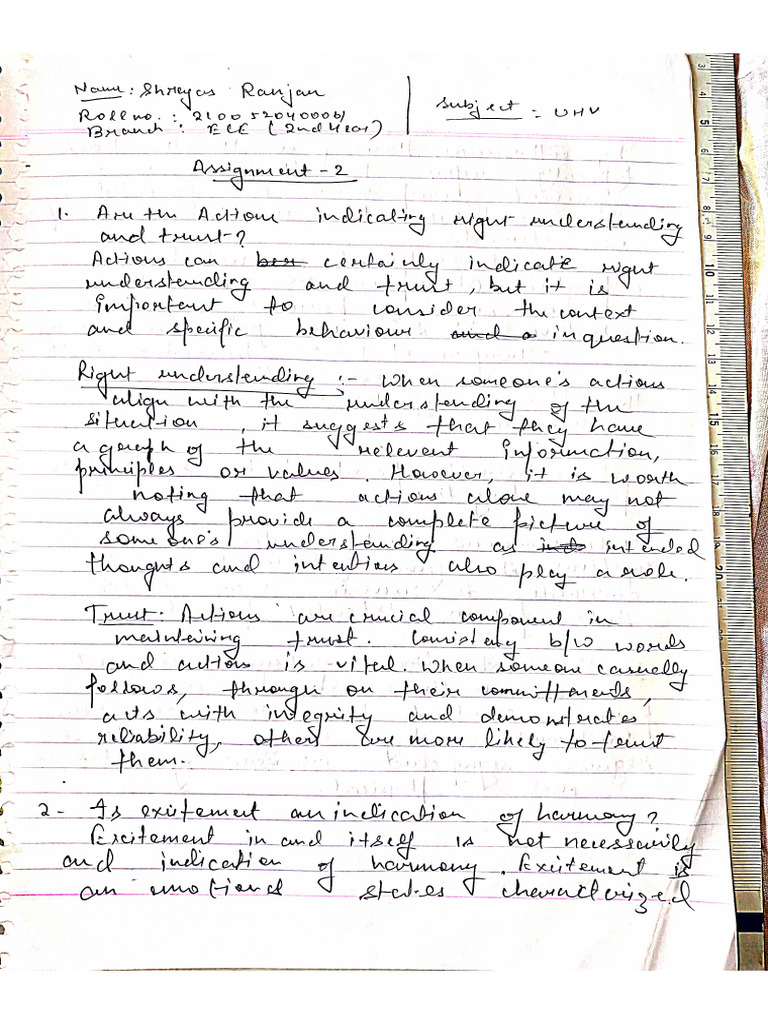 Name: Shreyas Ranjan
Roll no. : 2100520400061
Branch : ECE (2nd Year)
Subject = UHV
Assignment - 2
1. Are the Actions indicating right understanding
and trust?
Actions can certainly indicate right
understanding and trust, but it is
important to consider the context
and specific behaviour in question.
Right understanding :- When someone's actions
align with the understanding of the
situation, it suggests that they have
a graph of the relevent information,
principles or values. However, it is worth
noting that actions alone may not
always provide a complete picture of
someone's understanding as intended
thoughts and intentions also play a role.
Trust: Actions are crucial component in
maintaining trust. Consistency b/w words
and actions is vital. When someone casually
follows, through on their committments,
acts with integrity and demonstrates
reliability, others are more likely to trust
them.
2- Is exitement an indication of harmony?
Excitement in and itself is not necessarily
and indication of harmony. Exitement is
an emotional states characterized